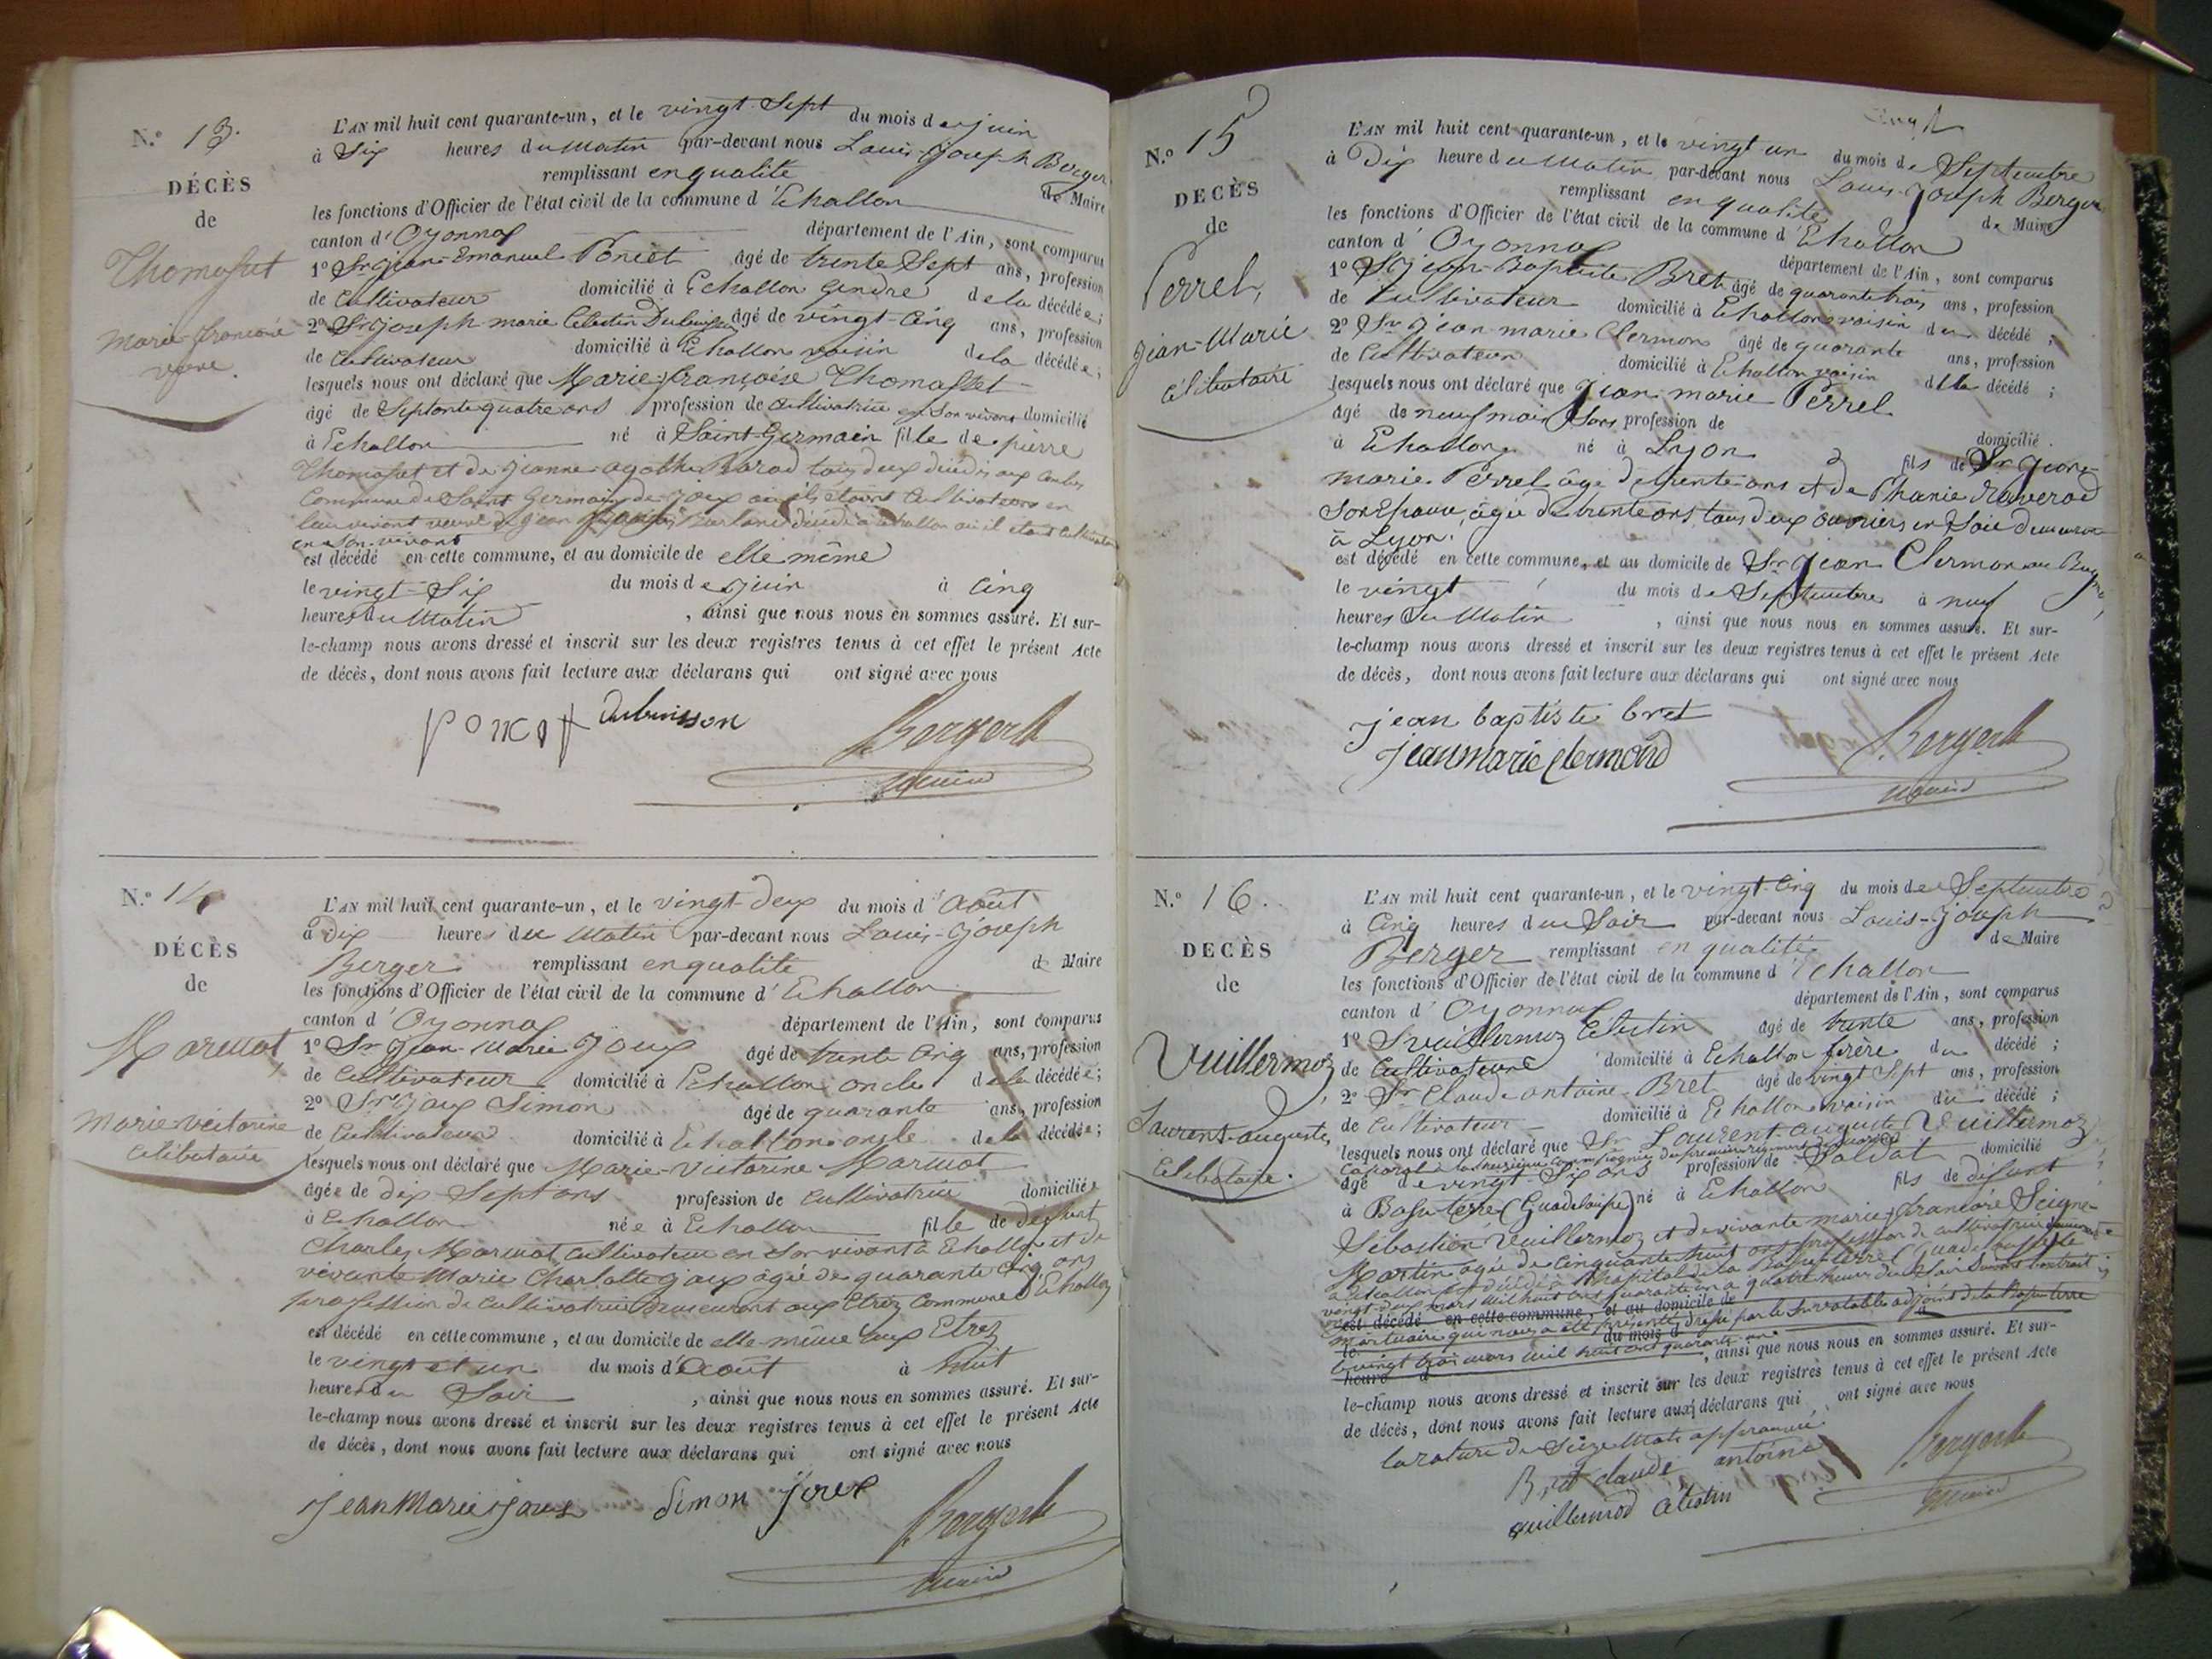 N.º 13.
DÉCÈS
de
Thomasset
Marie-françoise
veuve.
L'AN mil huit cent quarante-un, et le vingt-Sept du mois de juin
à Six heures du Matin par-devant nous Louis-Joseph Berger
remplissant en qualité de Maire
les fonctions d'Officier de l'état civil de la commune d'Echallon
canton d'Oyonnax département de l'Ain, sont comparus
1º Sr Jean-Emanuel Poncet âgé de trente Sept ans, profession
de Cultivateur domicilié à Echallon gendre de la décédée;
2º Sr Joseph marie Celestin Dubuisson âgé de vingt-Cinq ans, profession
de Cultivateur domicilié à Echallon voisin de la décédée;
lesquels nous ont déclaré que Marie françoise Thomasset
âgé de Septante quatre ans profession de Cultivatrice en Son vivant domicilié
à Echallon né à Saint-Germain fille de pierre
Thomasset et de jeanne agathe tous deux décédés aux
Commune de Saint Germain de Joux où ils étaient Cultivateurs en
leur vivant veuve de jean décédé à Echallon où il etait Cultivateur
en Son vivant
est décédé en cette commune, et au domicile de elle même
le vingt-Six du mois de juin à Cinq
heures du Matin, ainsi que nous nous en sommes assuré. Et sur-
le-champ nous avons dressé et inscrit sur les deux registres tenus à cet effet le présent Acte
de décès, dont nous avons fait lecture aux déclarans qui ont signé avec nous
poncet Dubuisson Berger
maire
N.º 14
DÉCÈS
de
Marmot,
Marie-Victorine
Célibataire
L'AN mil huit cent quarante-un, et le vingt-deux du mois d'Août
à Dix heures du Matin par-devant nous Louis-Joseph
Berger remplissant en qualité de Maire
les fonctions d'Officier de l'état civil de la commune d'Echallon
canton d'Oyonnax département de l'Ain, sont comparus
1º Sr Jean-Marie Joux âgé de trente Cinq ans, profession
de Cultivateur domicilié à Echallon oncle de la décédée;
2º Sr Joux Simon âgé de quarante ans, profession
de Cultivateur domicilié à Echallon oncle de la décédée;
lesquels nous ont déclaré que Marie-Victorine Marmot
âgée de dix Sept ans profession de Cultivatrice domiciliée
à Echallon née à Echallon fille de defunt
Charles Marmot Cultivateur en Son vivant à Echallon et de
vivante Marie Charlotte Joux âgée de quarante Cinq ans
profession de Cultivatrice demeurant aux Etrez Commune d'Echallon
est décédé en cette commune, et au domicile de elle-même aux Etrez
le vingt et un du mois d'Août à huit
heures du Soir, ainsi que nous nous en sommes assuré. Et sur-
le-champ nous avons dressé et inscrit sur les deux registres tenus à cet effet le présent Acte
de décès, dont nous avons fait lecture aux déclarans qui ont signé avec nous
jean Marie joux Simon joux Berger
maire
N.º 15
DECÈS
de
Perrel,
Jean-Marie
Célibataire
L'AN mil huit cent quarante-un, et le vingt-un du mois de Septembre
à Dix heure du Matin par-devant nous Louis-Joseph Berger
remplissant en qualité de Maire
les fonctions d'Officier de l'état civil de la commune d'Echallon
canton d'Oyonnax département de l'Ain, sont comparus
1º Sr Jean-Baptiste Bret âgé de quarante trois ans, profession
de Cultivateur domicilié à Echallon voisin du décédé;
2º Sr Jean-marie Clermon âgé de quarante ans, profession
de Cultivateur domicilié à Echallon voisin du décédé;
lesquels nous ont déclaré que Jean-marie Perrel
âgé de neuf mois Sans profession de domicilié
à Echallon né à Lyon fils de Sr Jean-
marie Perrel âgé de trente ans et de Phanie
Son Epouse, âgée de trente ans, tous deux ouvriers en Soie demeurant
à Lyon.
est décédé en cette commune, et au domicile de Sr Jean Clermon
le vingt du mois de Septembre à neuf
heures du Matin, ainsi que nous nous en sommes assuré. Et sur-
le-champ nous avons dressé et inscrit sur les deux registres tenus à cet effet le présent Acte
de décès, dont nous avons fait lecture aux déclarans qui ont signé avec nous
jean baptiste bret Berger
jean marie clermond maire
N.º 16.
DECÈS
de
Vuillermoz,
Laurent-auguste,
Célibataire.
L'AN mil huit cent quarante-un, et le vingt-Cinq du mois de Septembre
à Cinq heures du Soir par-devant nous Louis-Joseph
Berger remplissant en qualité de Maire
les fonctions d'Officier de l'état civil de la commune d'Echallon
canton d'Oyonnax département de l'Ain, sont comparus
1º Sr Vuillermoz Célestin âgé de trente ans, profession
de Cultivateur domicilié à Echallon frère du décédé;
2º Sr Claude-antoine Bret âgé de vingt Sept ans, profession
de Cultivateur domicilié à Echallon voisin du décédé;
lesquels nous ont déclaré que Sr Laurent-auguste Vuillermoz
Caporal à la Compagnie du premier régiment de marine
âgé de vingt-Six ans profession de Soldat domicilié
à Basse-terre (Guadeloupe) né à Echallon fils de défunt
Sébastien Vuillermoz et de vivante marie françoise Seigne-
Martin âgée de Cinquante huit ans profession de cultivatrice demeurante
à Echallon est décédé à l'hopital de la Basse-terre (Guadeloupe) le
vingt-deux mars mil huit cent quarante un à quatre heures du Soir Suivant l'extrait
est décédé en cette commune, et au domicile de
mortuaire qui nous a été présenté, dressé par le adjoint de la Basse terre
le du mois d à
le vingt trois mars mil huit cent quarante-un, ainsi que nous nous en sommes assuré. Et sur-
heure d
le-champ nous avons dressé et inscrit sur les deux registres tenus à cet effet le présent Acte
de décès, dont nous avons fait lecture aux déclarans qui ont signé avec nous
la rature de Seize Mots approuvée
Bret claude antoine Berger
vuillermoz celestin maire